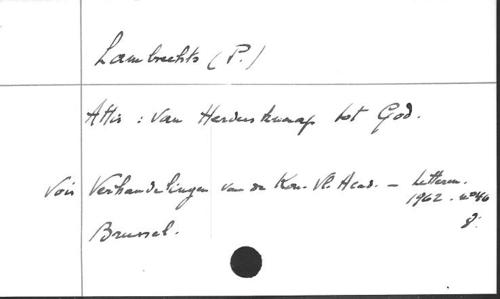 Lambrechts (P.)
Attis : van Herdersknaap tot God.
Vois Verhandelingen van de Kon. Vl. Acad. - Letteren.
1962. n° 46
Brussel. 8°